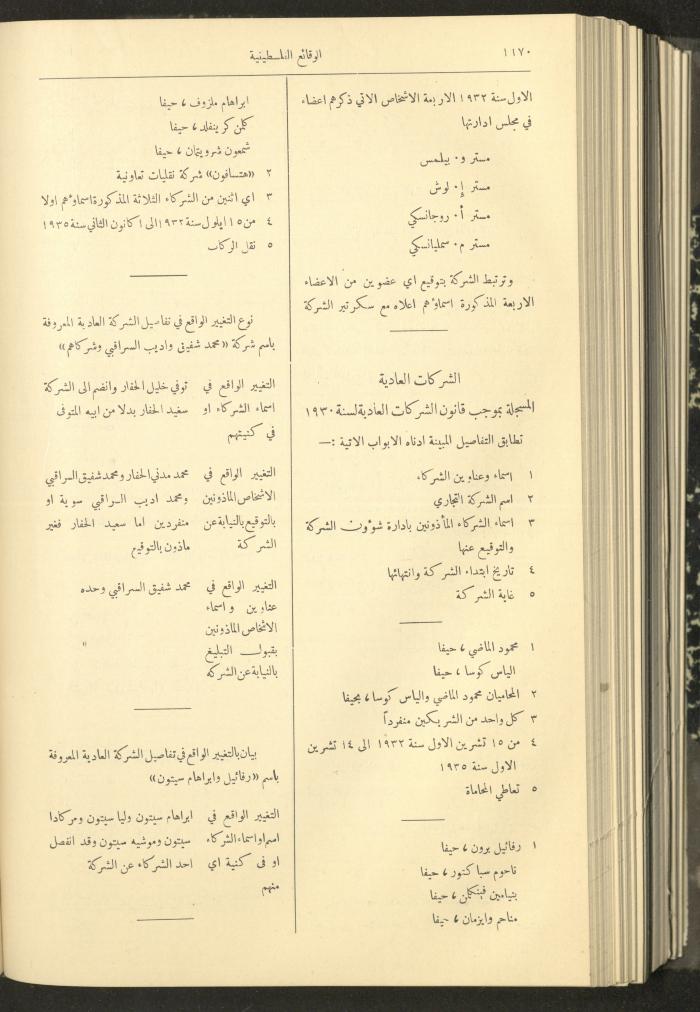 ١١٧٠
الوقائع الفلسطينية
الاول سنة ١٩٣٢ الاربعة الاشخاص الاتي ذكرهم اعضاء
في مجلس ادارتها
مستر و٠ يبلمس
مستر إ٠ لوش
مستر أ٠ روجانسكي
مستر م٠ سمليانسكي
وترتبط الشركة بتوقيع اي عضوين من الاعضاء
الاربعة المذكورة اسماؤهم اعلاه مع سكرتير الشركة
الشركات العادية
المسجلة بموجب قانون الشركات العادية لسنة ١٩٣٠
تطابق التفاصيل المبينة ادناه الابواب الاتية :—
١ اسماء وعناوين الشركاء
٢ اسم الشركة التجاري
٣ اسماء الشركاء المأذونين بادارة شوؤون الشركة
والتوقيع عنها
٤ تاريخ ابتداء الشركة وانتهائها
٥ غاية الشركة
١ محمود الماضي ، حيفا
الياس كوسا ، حيفا
٢ المحاميان محمود الماضي والياس كوسا ، بحيفا
٣ كل واحد من الشريكين منفرداً
٤ من ١٥ تشرين الاول سنة ١٩٣٢ الى ١٤ تشرين
الاول سنة ١٩٣٥
٥ تعاطي المحاماة
١ رفائيل برون ، حيفا
ناحوم سباكتور ، حيفا
بنيامين فينكلن ، حيفا
مناحم وايزمان ، حيفا
ابراهام ملزوف ، حيفا
كلن كرينفلد ، حيفا
شمعون شرويتمان ، حيفا
٢ «هتسافون» شركة نقليات تعاونية
٣ اي اثنين من الشركاء الثلاثة المذكورة اسماؤهم اولا
٤ من ١٥ ايلول سنة ١٩٣٢ الى ١ كانون الثاني سنة ١٩٣٥
٥ نقل الركاب
نوع التغيير الواقع في تفاصيل الشركة العادية المعروفة
باسم شركة «محمد شفيق واديب السراقبي وشركاهم»
التغيير الواقع في توفي خليل الحفار وانضم الى الشركة
اسماء الشركاء او سعيد الحفار بدلا من ابيه المتوفى
في كنيتهم
التغيير الواقع في محمد مدني الحفار ومحمد شفيق السراقبي
الاشخاص الماذونين ومحمد اديب السراقبي سوية او
بالتوقيع بالنيابة عن منفردين اما سعيد الحفار فغير
الشركة ماذون بالتوقيع
التغيير الواقع في محمد شفيق السراقبي وحده
عناوين واسماء
الاشخاص الماذونين
بقبول التبليغ
بالنيابة عن الشركه
بيان بالتغيير الواقع في تفاصيل الشركة العادية المعروفة
باسم «رفائيل وابراهام سيتون»
التغيير الواقع في ابراهام سيتون وليا سيتون ومركادا
اسم او اسماء الشركاء سيتون وموشيه سيتون وقد انفصل
او فى كنية اي احد الشركاء عن الشركة
منهم